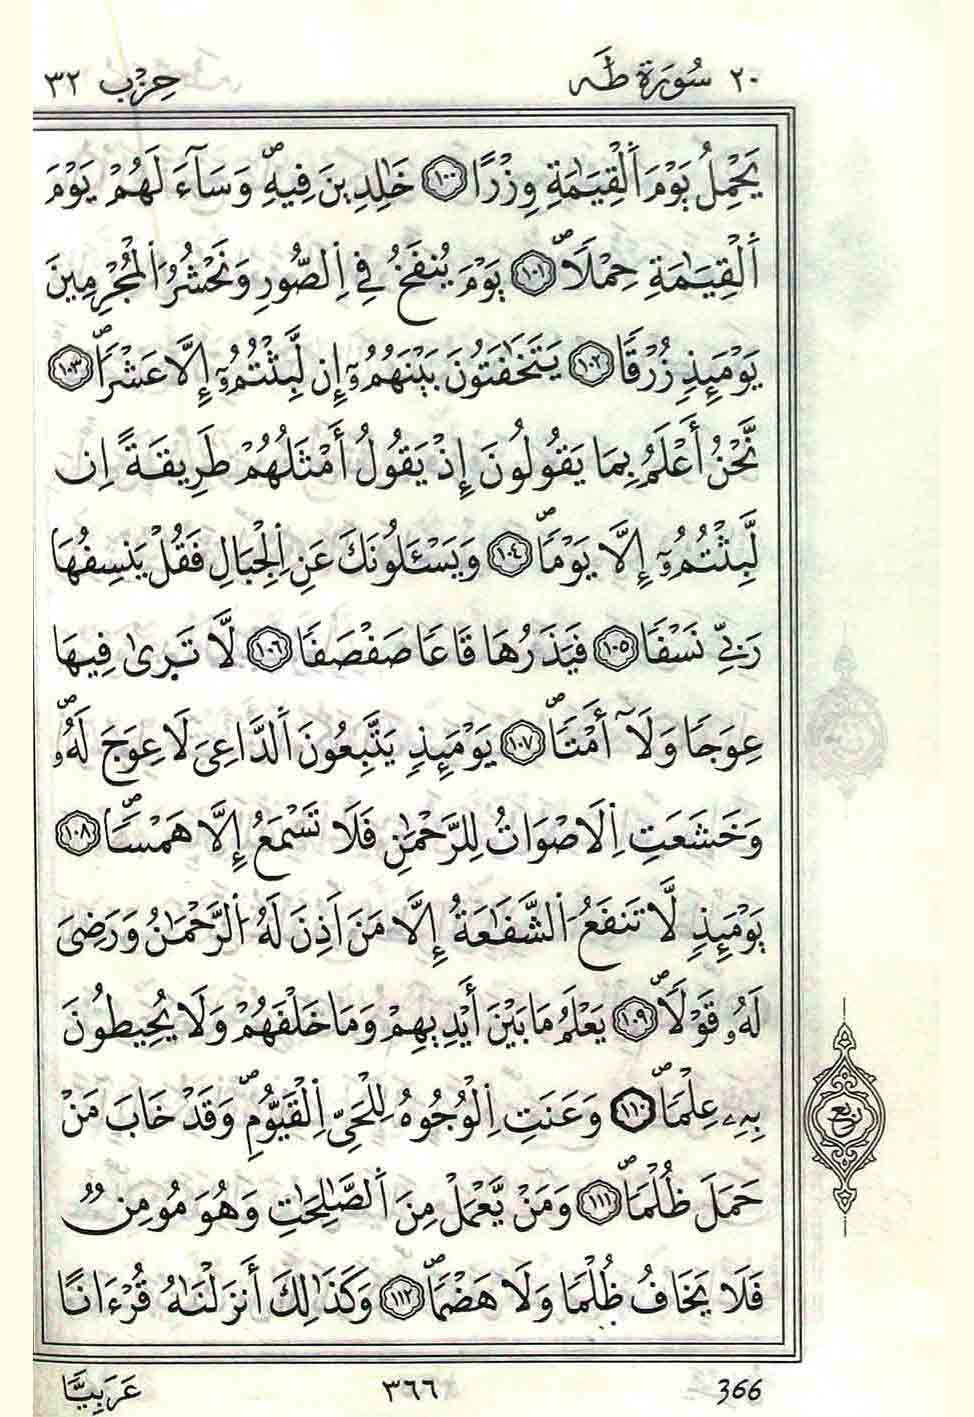 ٢٠ سُورَةُ طَهَ حِزْب ٣٢
يَحْمِلُ يَوْمَ اَلْقِيَٰمَةِ وِزْرًا ١٠٠ خَٰلِدِينَ فِيهِۖ وَسَآءَ لَهُمْ يَوْمَ
اَلْقِيَٰمَةِ حِمْلًاۖ ١٠١ يَوْمَ يُنفَخُ فِے اِلصُّورِ وَنَحْشُرُ اُلْمُجْرِمِينَ
يَوْمَئِذٍ زُرْقًا ١٠٢ يَتَخَٰفَتُونَ بَيْنَهُمُۥٓ إِن لَّبِثْتُمُۥٓ إِلَّا عَشْراًۖ ١٠٣
نَّحْنُ أَعْلَمُ بِمَا يَقُولُونَ إِذْ يَقُولُ أَمْثَلُهُمْ طَرِيقَةً اِن
لَّبِثْتُمُۥٓ إِلَّا يَوْماًۖ ١٠٤ وَيَسْـَٔلُونَكَ عَنِ اِلْجِبَالِ فَقُلْ يَنسِفُهَا
رَبِّے نَسْفًا ١٠٥ فَيَذَرُهَا قَاعًا صَفْصَفًا ١٠٦ لَّا تَرٜىٰ فِيهَا
عِوَجًا وَلَآ أَمْتاًۖ ١٠٧ يَوْمَئِذٍ يَتَّبِعُونَ اَلدَّاعِىَ لَا عِوَجَ لَهُۥۖ
وَخَشَعَتِ اِلَاصْوَاتُ لِلرَّحْمَٰنِ فَلَا تَسْمَعُ إِلَّا هَمْساًۖ ١٠٨
يَوْمَئِذٍ لَّا تَنفَعُ اُلشَّفَٰعَةُ إِلَّا مَنَ اَذِنَ لَهُ اُلرَّحْمَٰنُ وَرَضِىَ
لَهُۥ قَوْلًاۖ ١٠٩ يَعْلَمُ مَا بَيْنَ أَيْدِيهِمْ وَمَا خَلْفَهُمْ وَلَا يُحِيطُونَ
بِهِۦ عِلْماًۖ ١١٠ وَعَنَتِ اِلْوُجُوهُ لِلْحَىِّ اِلْقَيُّومِۖ وَقَدْ خَابَ مَنْ
ربع
حَمَلَ ظُلْماًۖ ١١١ وَمَنْ يَّعْمَلْ مِنَ اَلصَّٰلِحَٰتِ وَهُوَ مُومِنٌ
فَلَا يَخَافُ ظُلْمًا وَلَا هَضْماًۖ ١١٢ وَكَذَٰلِكَ أَنزَلْنَٰهُ قُرْءَانًا
366 ٣٦٦ عَرَبِيًّا